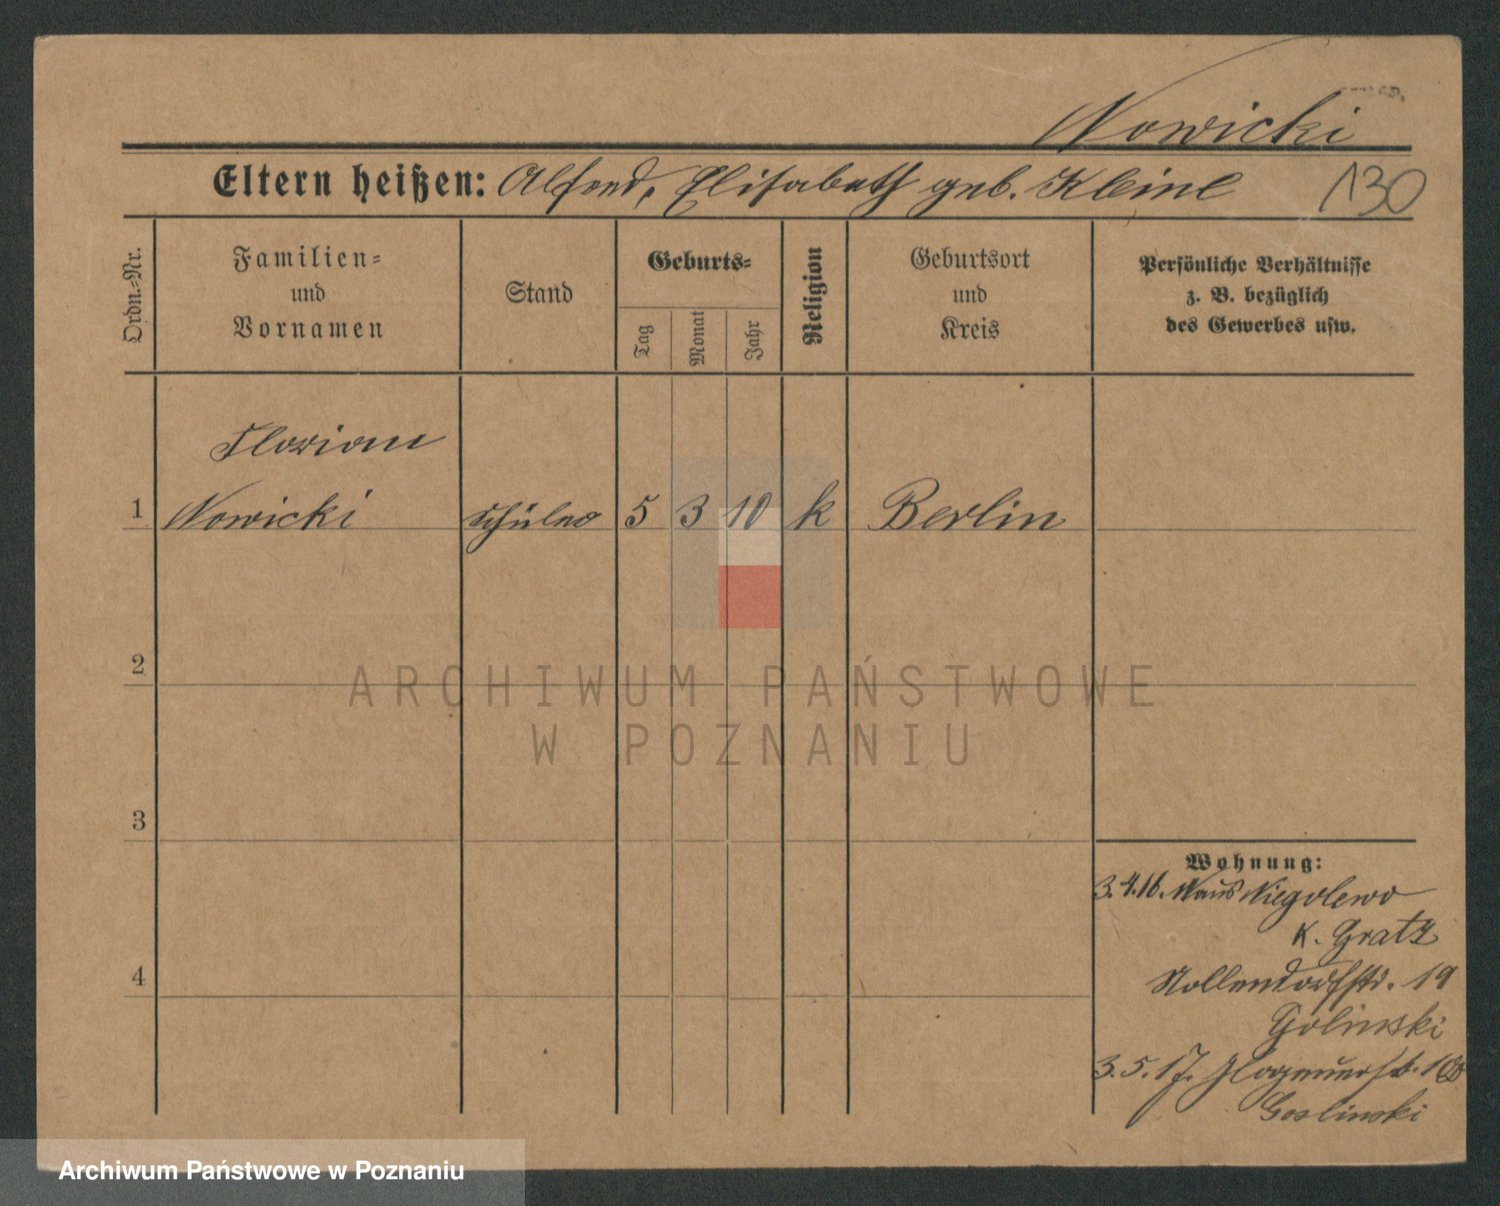 Nowicki
Eltern heißen: Alfred, Elisabeth geb. Kleine 130
Ordn.-Nr.
Familien-
und
Vornamen
Stand
Geburts-
Tag
Monat
Jahr
Religion
Geburtsort
und
Kreis
Persönliche Verhältnisse
z. B. bezüglich
des Gewerbes usw.
Florian
1 Nowicki Schüler 5 3 10 k Berlin
2
ARCHIWUM PAŃSTWOWE
W POZNANIU
3
Wohnung:
3.4.16. Niegolewo
K. Gratz
4
Nollendorfstr. 19
Golinski
3.5.17. Glogauerstr.
Goslinski
Archiwum Państwowe w Poznaniu